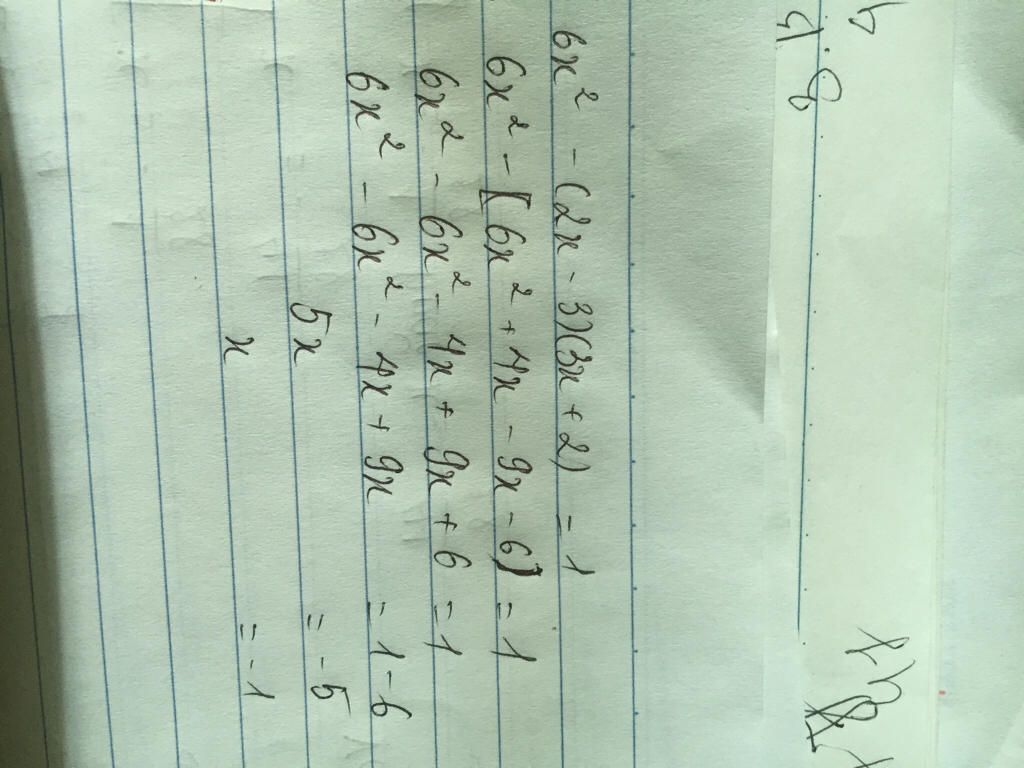 6x² - (2x - 3)(3x + 2) = 1
6x² - [6x² + 4x - 9x - 6] = 1
6x² - 6x² - 4x + 9x + 6 = 1
6x² - 6x² - 4x + 9x = 1 - 6
5x = -5
x = -1